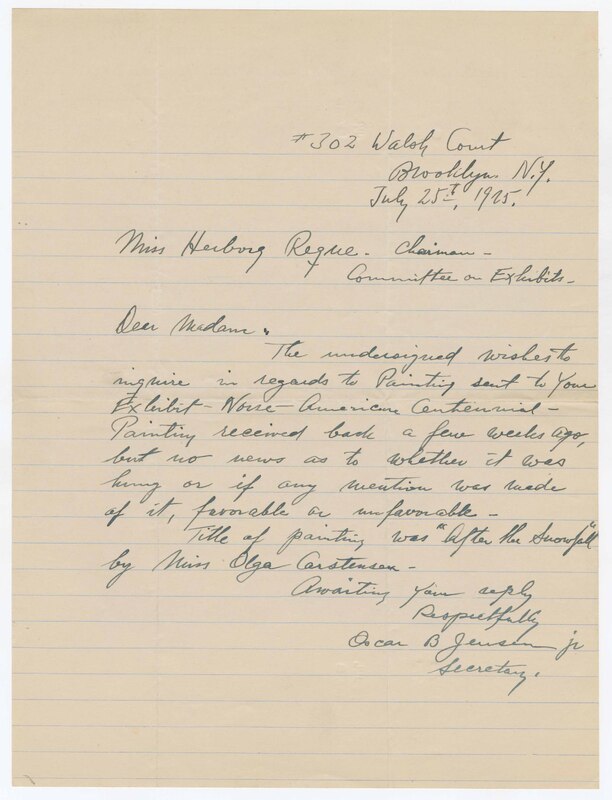 #302 Walsh Court
Brooklyn. N.Y.
July 25t, 1925.
Miss Herborg Reque. Chairman -
Committee on Exhibits -
Dear Madam.
The undersigned wishes to
inquire in regards to Painting sent to Your
Exhibit - Norse - American Centennial -
Painting received back a few weeks ago,
but no news as to whether it was
hung or if any mention was made
of it, favorable or unfavorable -
Title of painting was "After the Snowfall"
by Miss Olga Carstensen -
Awaiting Your reply
Respectfully
Oscar B Jensen jr
Secretary.